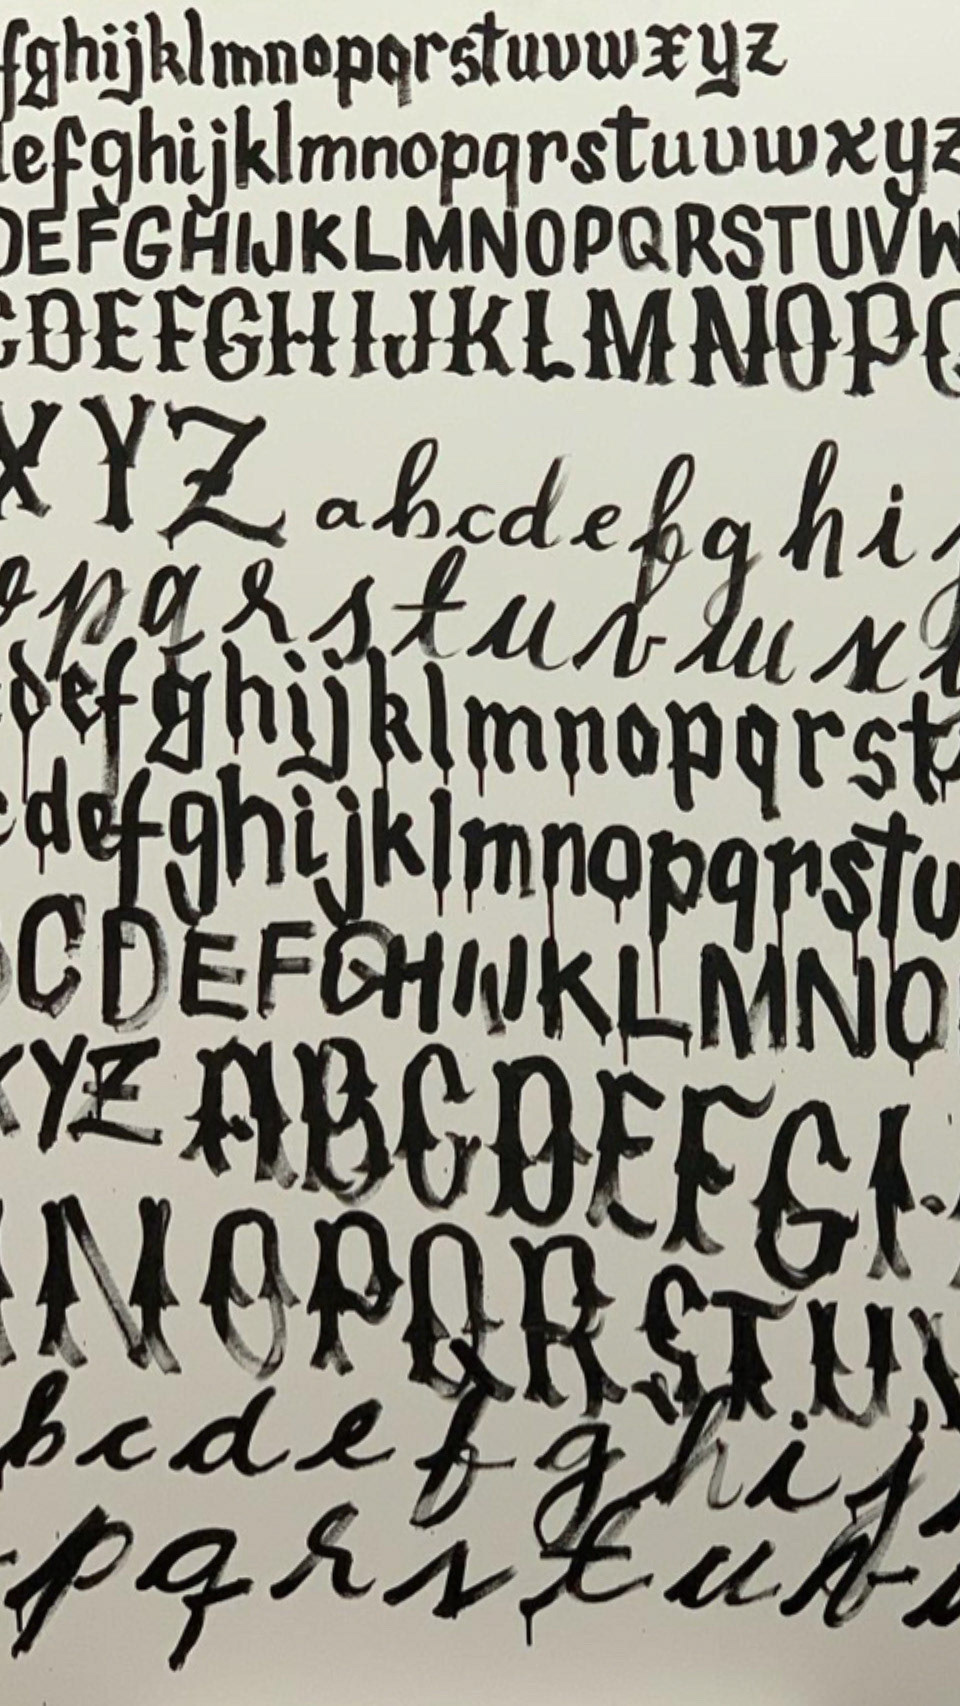 fghijklmnopqrstuvwxyz
defghijklmnopqrstuvwxyz
DEFGHIJKLMNOPQRSTUVW
CDEFGHIJKLMNOPQ
XYZ abcdefghi
opqrstuvwx
defghijklmnopqrst
cdefghijklmnopqrstu
CDEFGHIJKLMNO
XYZ ABCDEFG
NOPQRSTUV
bcdefghij
pqrstuv